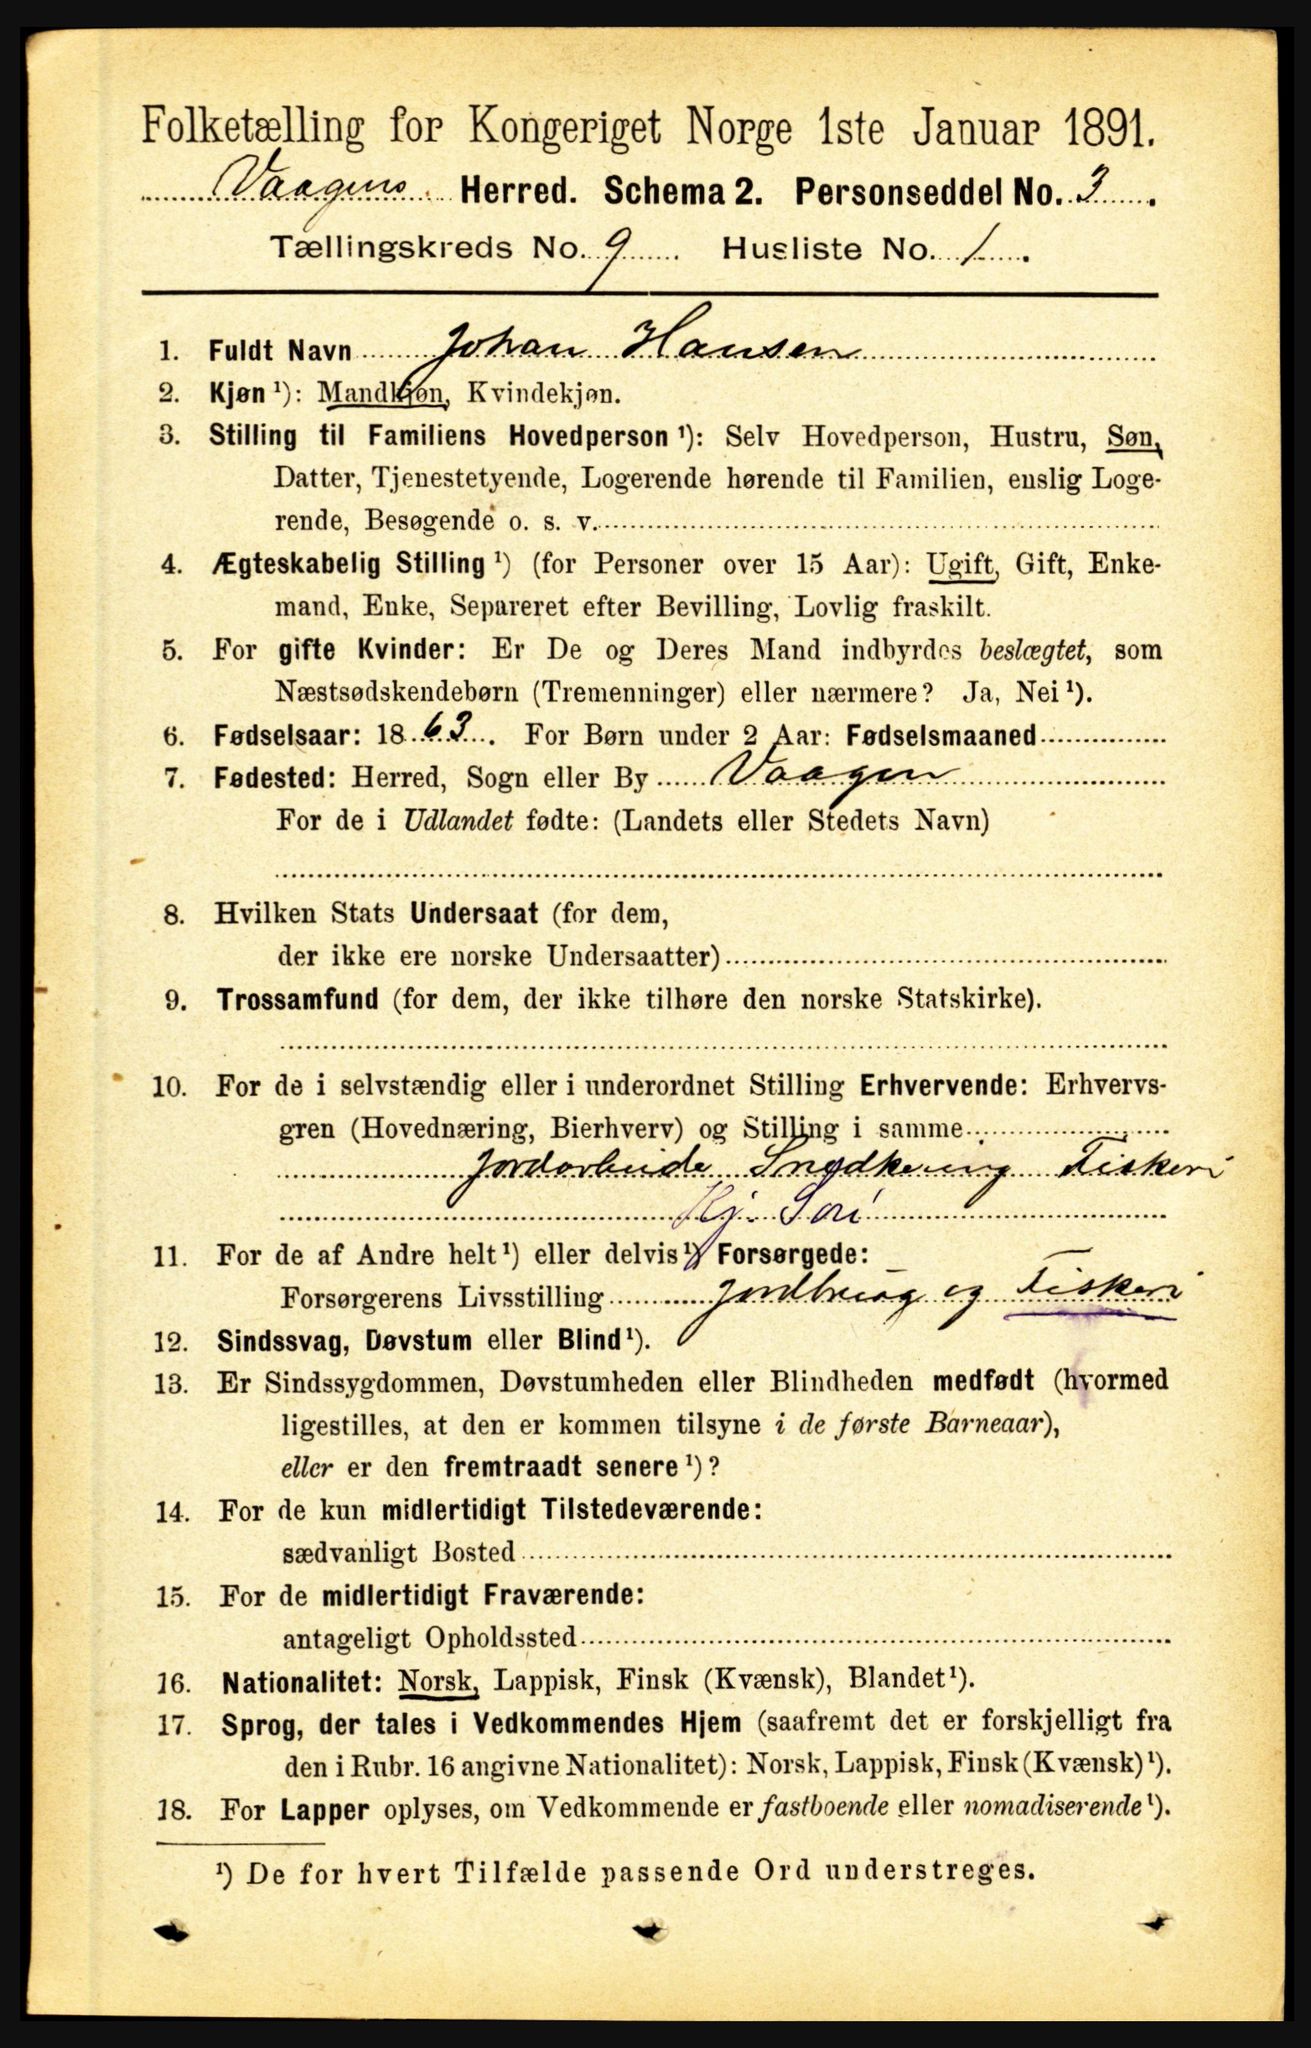 Folketælling for Kongeriget Norge 1ste Januar 1891.
Vaagens Herred. Schema 2. Personseddel No. 3.
Tællingskreds No. 9. Husliste No. 1.
1. Fuldt Navn Johan Hansen
2. Kjøn ¹): Mandkjøn, Kvindekjøn.
3. Stilling til Familiens Hovedperson ¹): Selv Hovedperson, Hustru, Søn,
Datter, Tjenestetyende, Logerende hørende til Familien, enslig Loge-
rende, Besøgende o. s. v.
4. Ægteskabelig Stilling ¹) (for Personer over 15 Aar): Ugift, Gift, Enke-
mand, Enke, Separeret efter Bevilling, Lovlig fraskilt.
5. For gifte Kvinder: Er De og Deres Mand indbyrdes beslægtet, som
Næstsødskendebørn (Tremenninger) eller nærmere? Ja, Nei ¹).
6. Fødselsaar: 1863. For Børn under 2 Aar: Fødselsmaaned
7. Fødested: Herred, Sogn eller By Vaagen
For de i Udlandet fødte: (Landets eller Stedets Navn)
8. Hvilken Stats Undersaat (for dem,
der ikke ere norske Undersaatter)
9. Trossamfund (for dem, der ikke tilhøre den norske Statskirke).
10. For de i selvstændig eller i underordnet Stilling Erhvervende: Erhvervs-
gren (Hovednæring, Bierhverv) og Stilling i samme
Jordarbeide Snedkering Fiskeri
Hj. Søn
11. For de af Andre helt ¹) eller delvis ¹) Forsørgede:
Forsørgerens Livsstilling Jordbrug og Fiskeri
12. Sindssvag, Døvstum eller Blind ¹).
13. Er Sindssygdommen, Døvstumheden eller Blindheden medfødt (hvormed
ligestilles, at den er kommen tilsyne i de første Barneaar),
eller er den fremtraadt senere ¹)?
14. For de kun midlertidigt Tilstedeværende:
sædvanligt Bosted
15. For de midlertidigt Fraværende:
antageligt Opholdssted
16. Nationalitet: Norsk, Lappisk, Finsk (Kvænsk), Blandet ¹).
17. Sprog, der tales i Vedkommendes Hjem (saafremt det er forskjelligt fra
den i Rubr. 16 angivne Nationalitet): Norsk, Lappisk, Finsk (Kvænsk) ¹).
18. For Lapper oplyses, om Vedkommende er fastboende eller nomadiserende ¹).
¹) De for hvert Tilfælde passende Ord understreges.